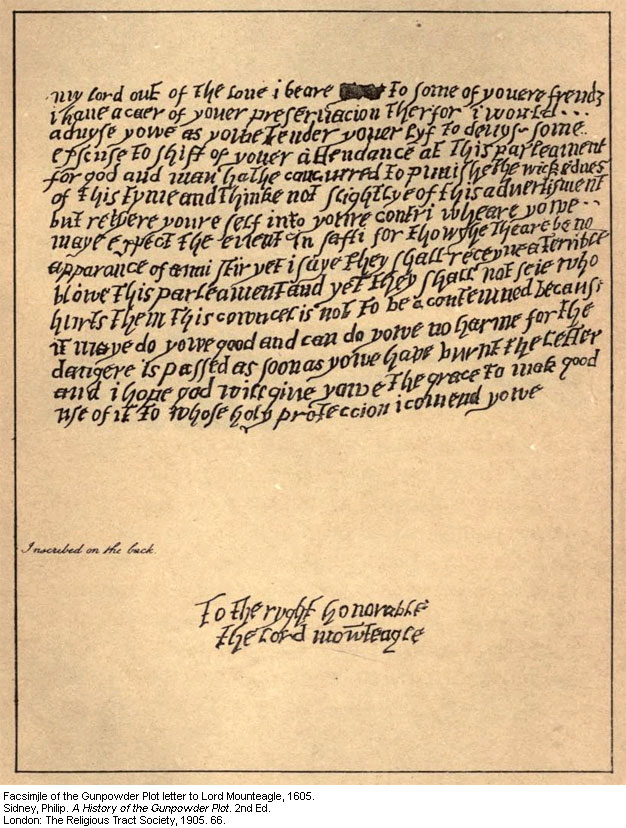 my lord out of the loue i beare to some of youere frendz
i haue a caer of youer preseruacion therfor i would . . .
aduyse yowe as yowe tender youer lyf to deuys some
excuse to shift of youer attendance at this parleament
for god and man hathe concurred to punishe the wickednes
of this tyme and thinke not slightlye of this aduertisment
but retyere youre self into youre contri wheare yowe . .
maye expect the euent in safti for thowghe theare be no
apparance of anni stir yet i saye they shall receyue a terrible
blowe this parleament and yet they shall not seie who
hurts them this councel is not to be acontemned becaus
it maye do yowe good and can do yowe no harme for the
dangere is passed as soon as yowe have burnt the letter
and i hope god will giue yowe the grace to mak good
use of it to whose holy proteccion i comend yowe
Inscribed on the back.
To the ryght honorable
the lord mowteagle
Facsimile of the Gunpowder Plot letter to Lord Mounteagle, 1605.
Sidney, Philip. A History of the Gunpowder Plot. 2nd Ed.
London: The Religious Tract Society, 1905. 66.